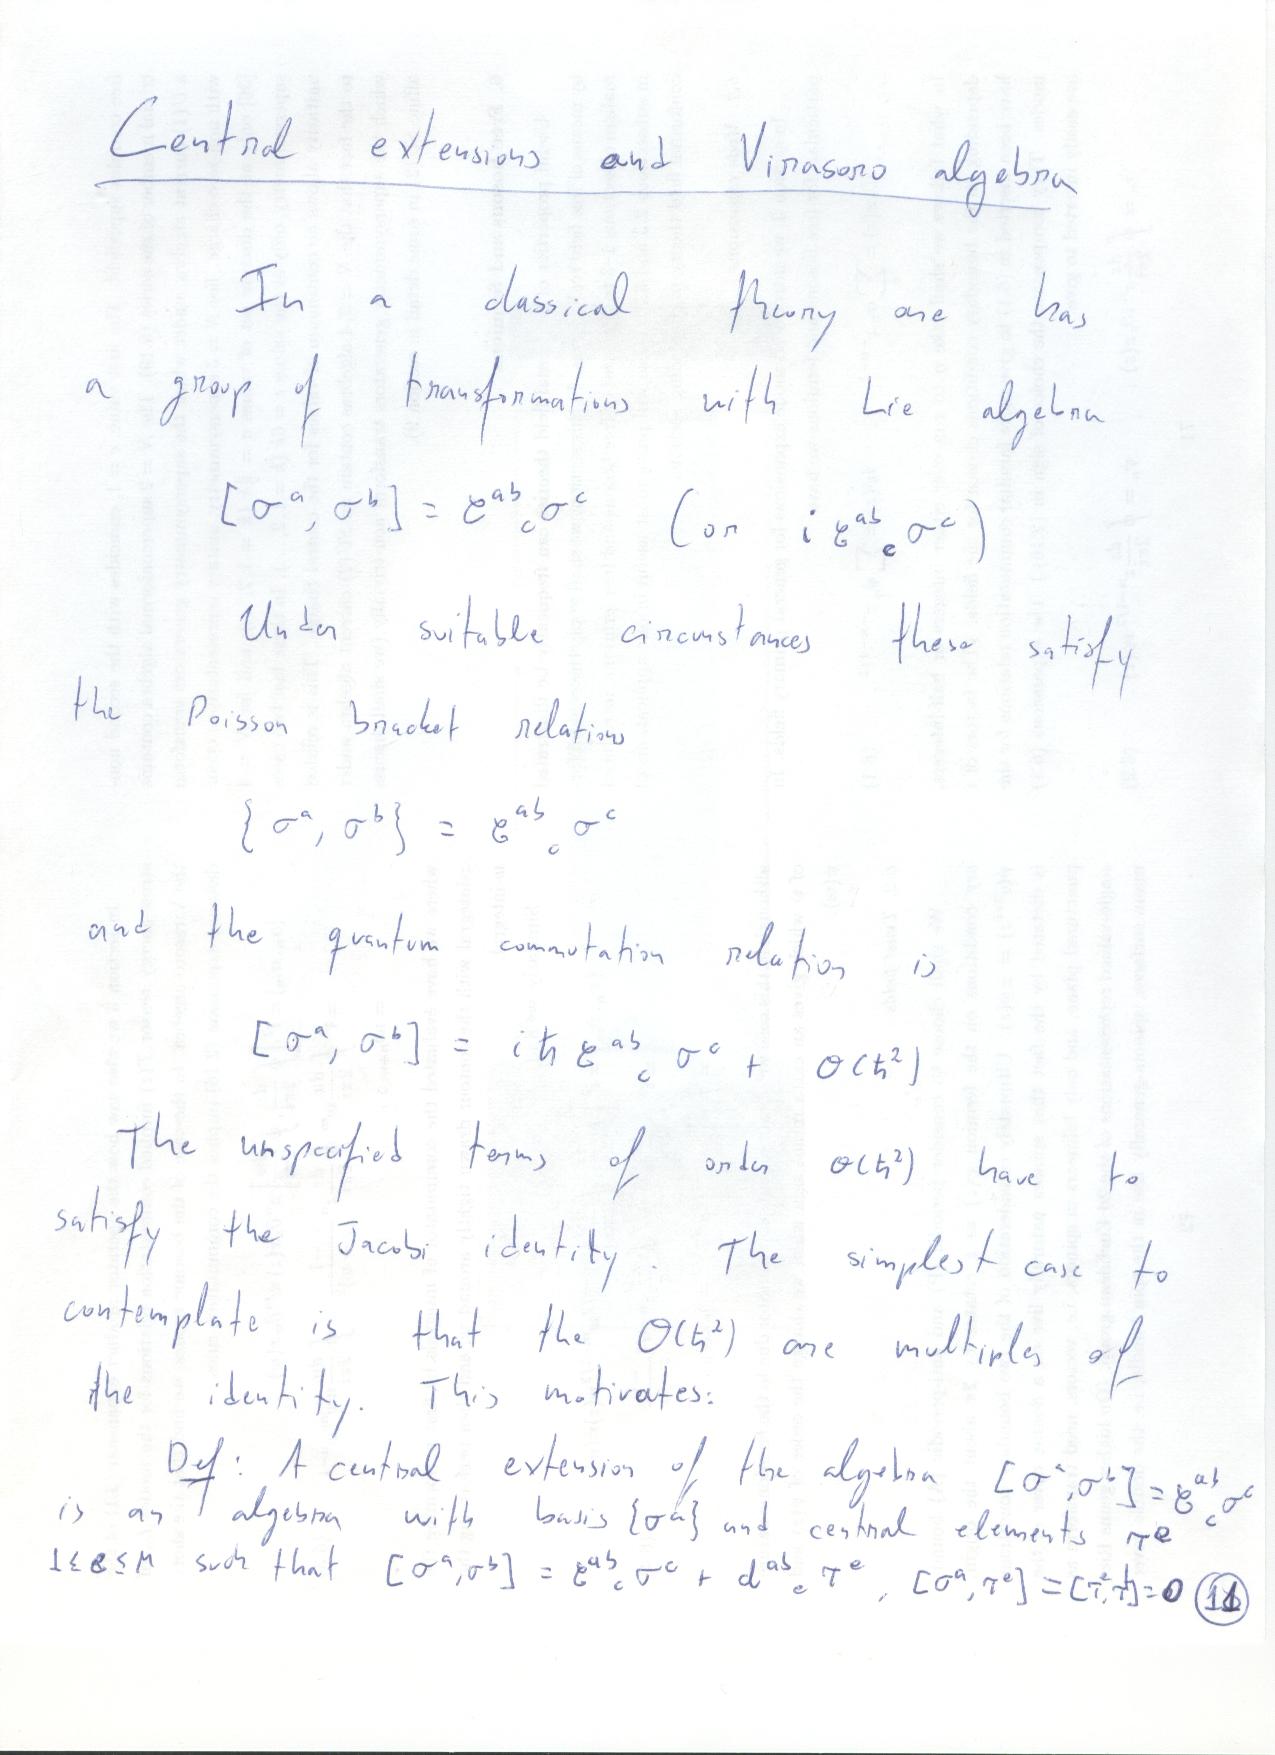 Central extensions and Virasoro algebra
In a classical theory one has
a group of transformations with Lie algebra
[σᵃ, σᵇ] = εᵃᵇ_c σᶜ (or i εᵃᵇ_c σᶜ)
Under suitable circumstances these satisfy
the Poisson bracket relations
{σᵃ, σᵇ} = εᵃᵇ_c σᶜ
and the quantum commutation relation is
[σᵃ, σᵇ] = iħ εᵃᵇ_c σᶜ + O(ħ²)
The unspecified terms of order O(ħ²) have to
satisfy the Jacobi identity. The simplest case to
contemplate is that the O(ħ²) are multiples of
the identity. This motivates:
Def: A central extension of the algebra [σᵃ, σᵇ] = εᵃᵇ_c σᶜ
is an algebra with basis {σᵃ} and central elements πᵉ
1≤e≤M such that [σᵃ, σᵇ] = εᵃᵇ_c σᶜ + dᵃᵇ_e πᵉ, [σᵃ, πᵉ] = [πᵉ, πᵇ] = 0 11